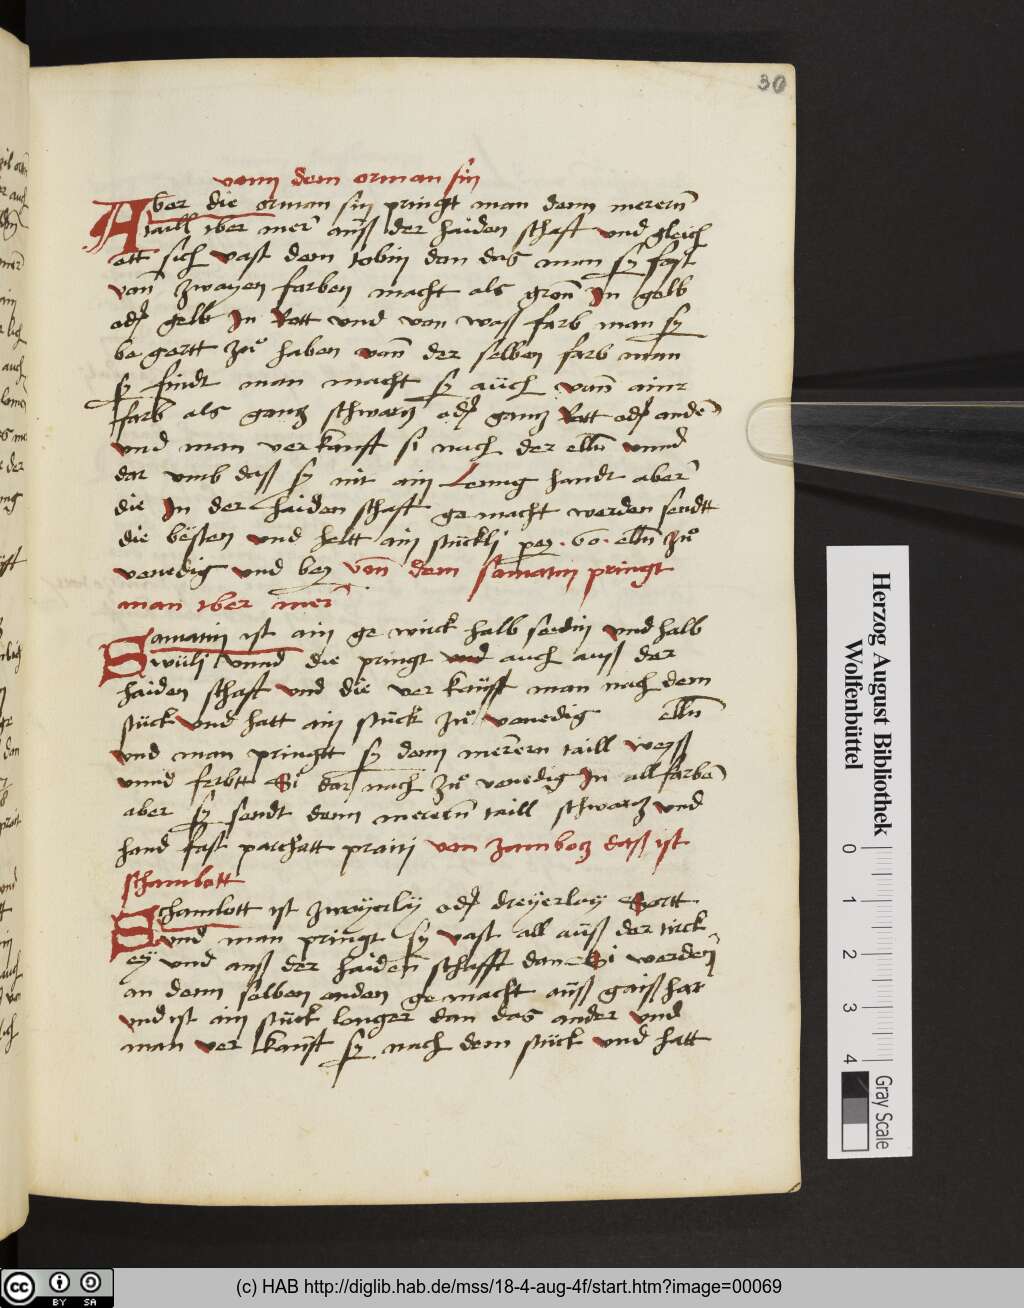 30
vonn dem orman sin
Aber die orman sin pringt man denn merern
taill iber mer auß der haiden schaft und gleich
ett sich vast dem tobin dan das man sy fast
von zwayen farben macht als gron In gelb
oder gelb In Rott und von wass farb man sy
be gertt zu haben vann der selben farb man
sy findt man macht sy auch vann ainr
farb als gantz schwartz oder gantz Rott oder ander
und man verkauft si nach der elln unnd
dar umb dass sy nit ain Leng handt aber
die In der haiden schaft gemacht werden sendt
die besten und heltt ain stuckli pey .60. elln zu
venedig und bey von dem samatin pringt
man iber mer
Samatin ist ain ge wirck halb seedin und halb
wuli unnd die pringt und auch auss der
haiden schaft und die ver kauft man nach dem
stuck und hatt ain stuck zu venedig elln
und man pringtt sy denn merern taill weyss
unnd ferbtt Si dar nach zu venedig In all farben
aber sy sendt denn merern taill schwartz und
hand fast parchatt praiti von zambotz dass ist
schambott
Schamlott ist zwayerly oder dreyerlay Sortt
und man pringt sy vast all auss der tirck
ey und auss der haiden schafft dan Si werden
an denn selben enden ge macht auss gaisshar
und ist ain stuck lenger dan das ander und
man ver kauft sy nach dem stuck und hatt
Herzog August Bibliothek
Wolfenbüttel
0 1 2 3 4
Gray Scale
cc BY SA
(c) HAB http://diglib.hab.de/mss/18-4-aug-4f/start.htm?image=00069